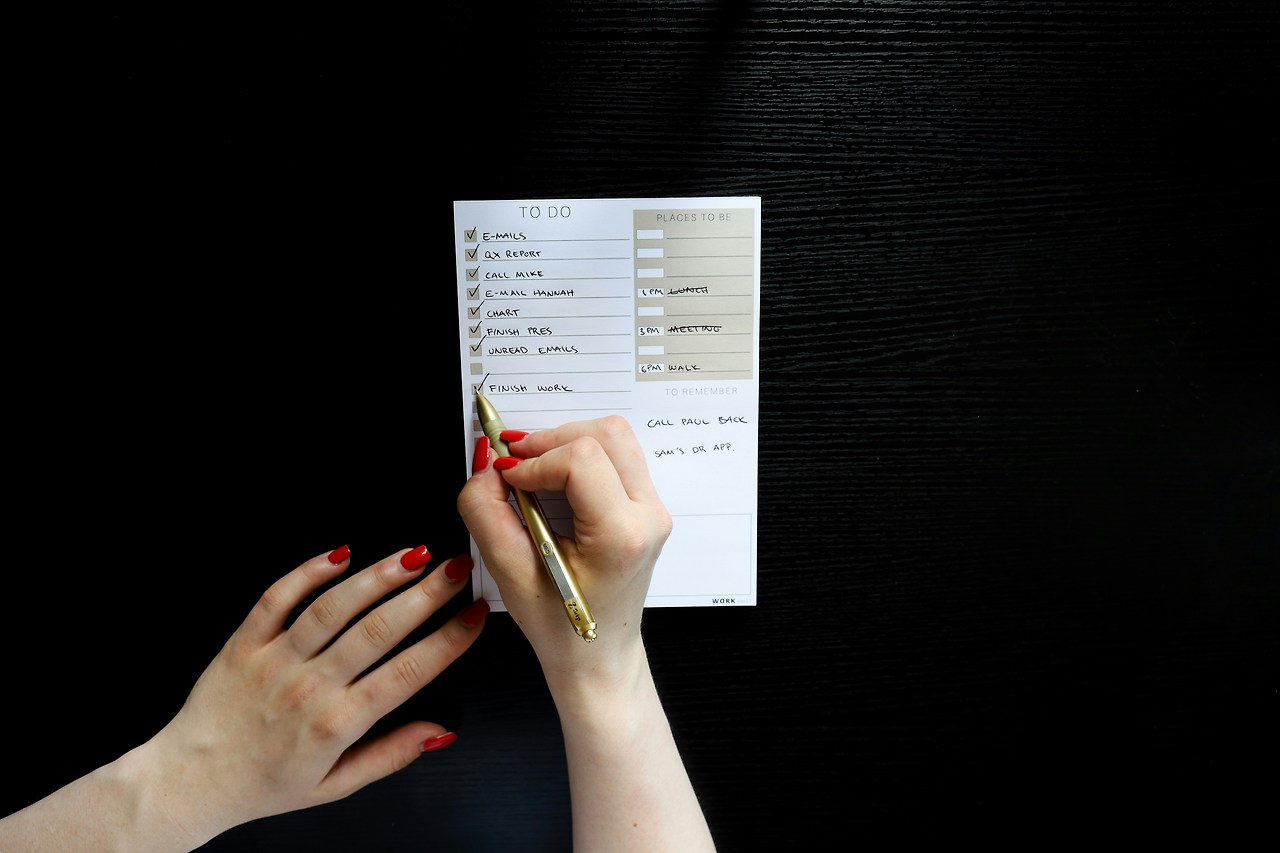 TO DO
E-MAILS
QX REPORT
CALL MIKE
E-MAIL HANNAH
CHART
FINISH PRES
UNREAD EMAILS
FINISH WORK
PLACES TO BE
1PM LUNCH
3PM MEETING
6PM WALK
TO REMEMBER
CALL PAUL BACK
SAM'S DR APP.
WORK